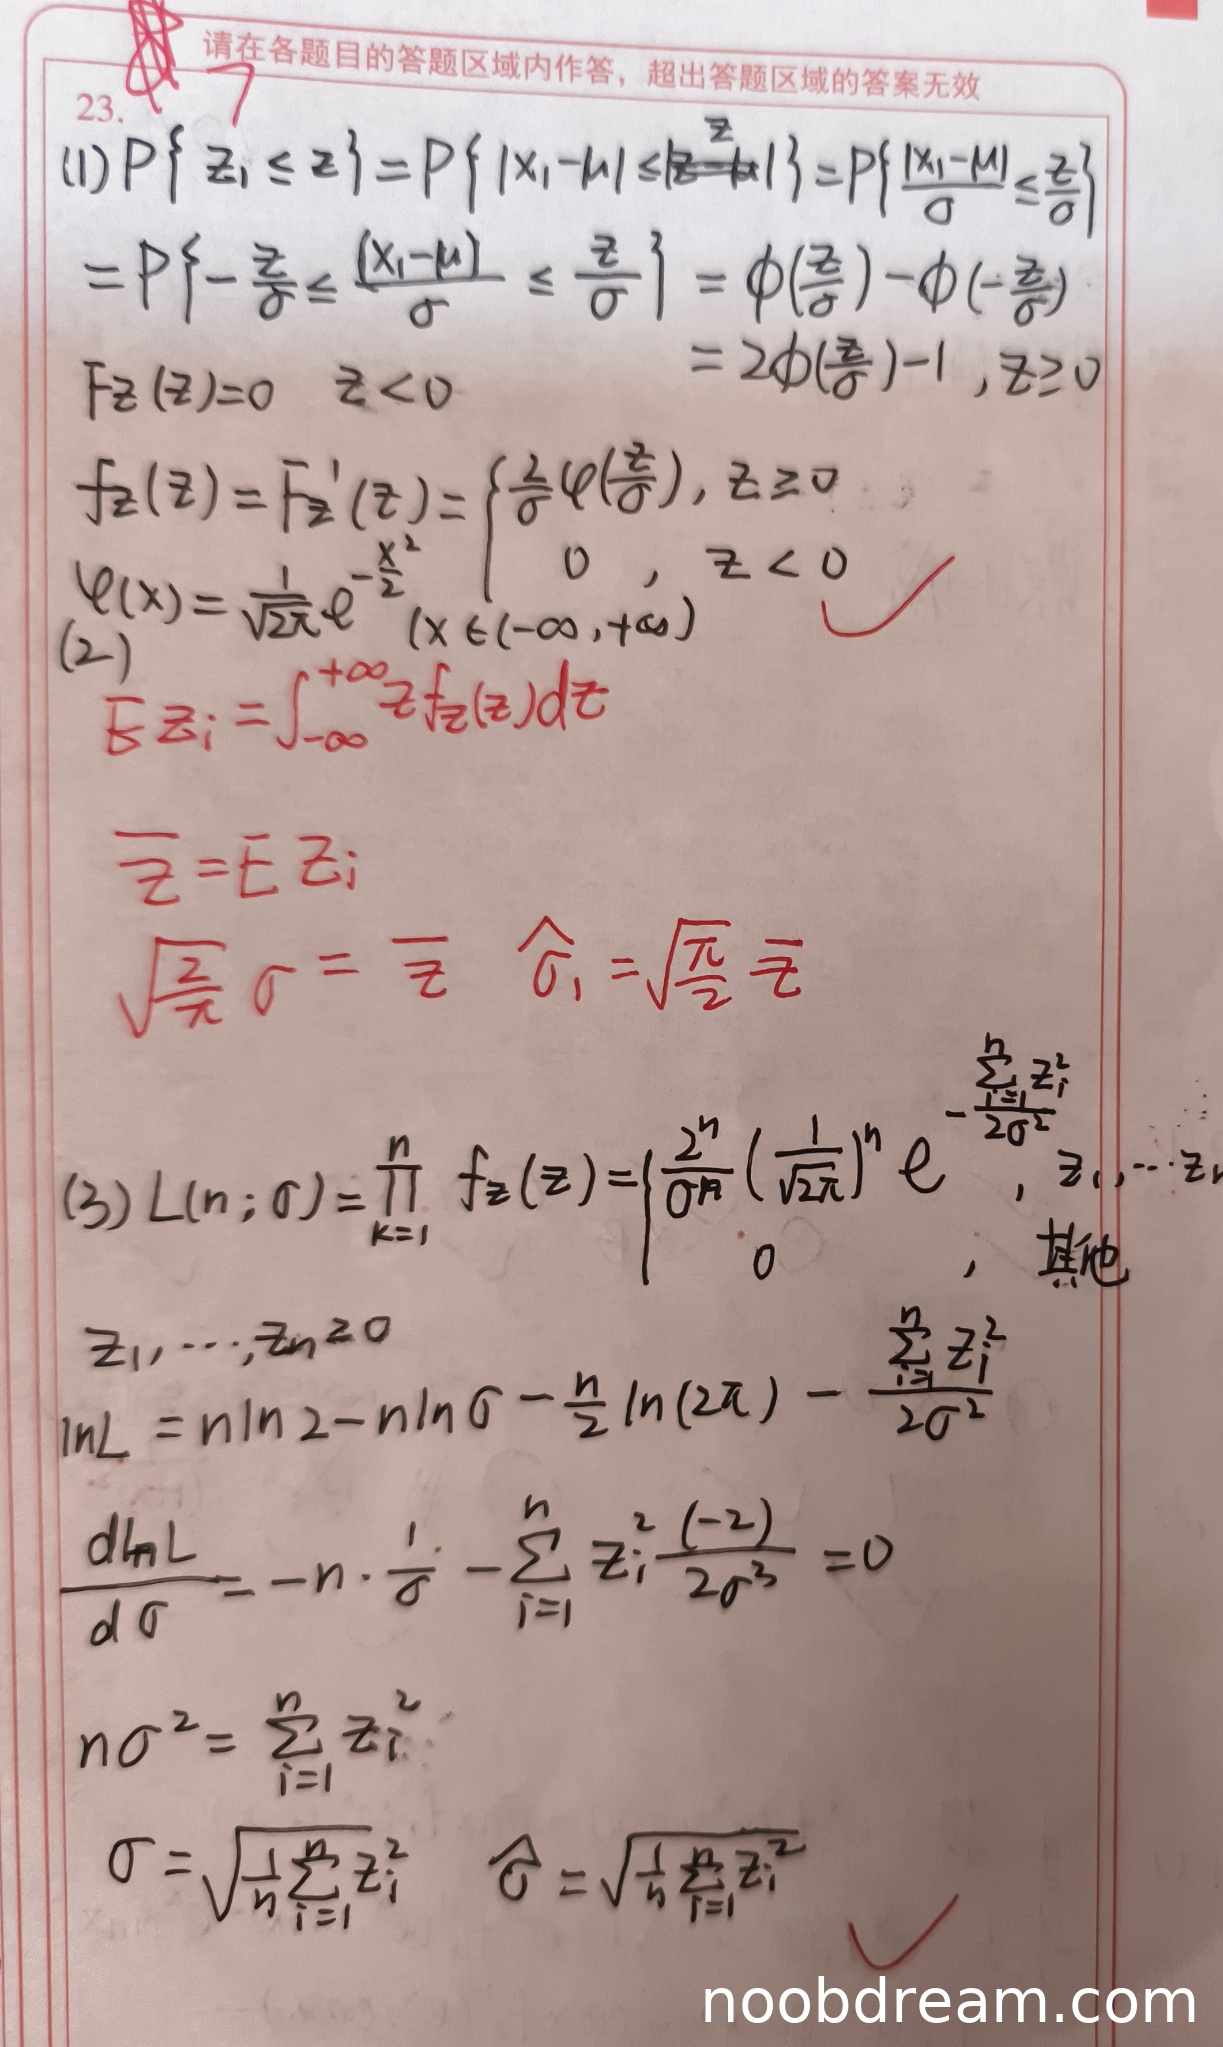 请在各题目的答题区域内作答，超出答题区域的答案无效
23. 7
(1) P{ Z₁ ≤ z } = P{ |X₁-μ| ≤ z } = P{ |X₁-μ|/σ ≤ z/σ }
= P{ -z/σ ≤ (X₁-μ)/σ ≤ z/σ } = Φ(z/σ) - Φ(-z/σ)
= 2Φ(z/σ) - 1 , z ≥ 0
Fz(z)=0 z<0
fz(z) = Fz'(z) = { 2/σ φ(z/σ), z ≥ 0
0 , z < 0
φ(x) = 1/√2π e^(-x²/2) (x∈(-∞,+∞)
(2)
E Zi = ∫_{-∞}^{+∞} z fz(z) dz
z̄ = E Zi
√(2/π) σ = z̄ σ̂₁ = √(π/2) z̄
(3) L(n;σ) = ∏_{k=1}^{n} fz(z) = { 2ⁿ/σⁿ (1/√2π)ⁿ e^(-∑_{i=1}^{n} zi²/2σ²) , z₁,…zn
0 , 其他
z₁,…,zn ≥ 0
lnL = n ln2 - n lnσ - n/2 ln(2π) - ∑_{i=1}^{n} zi²/2σ²
dlnL/dσ = -n · 1/σ - ∑_{i=1}^{n} zi² (-2)/2σ³ = 0
nσ² = ∑_{i=1}^{n} zi²
σ = √(1/n ∑_{i=1}^{n} zi²) σ̂ = √(1/n ∑_{i=1}^{n} zi²)
noobdream.com